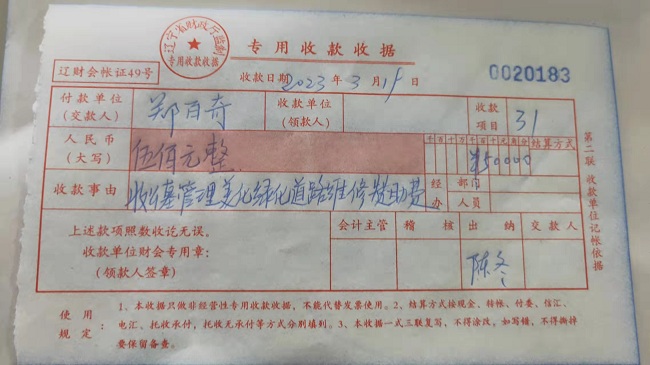 辽宁省财政厅监制
专用收款收据
专用收款收据
辽财会帐证49号
收款日期 2023 年 3 月 19 日
0020183
付款单位
(交款人)
郑百奇
收款单位
(领款人)
收款
项目
31
人民币
(大写)
伍佰元整
千 百 十 万 千 百 十 元 角 分
¥50000
结算方式
收款事由
收墓管理美化绿化道路维修赞助费
经 部门
办 人员
上述款项照数收讫无误。
收款单位财会专用章:
(领款人签章)
会计主管
稽 核
出 纳
交款人
陈冬
第二联 收款单位记帐依据
使 用
规 定
1、本收据只做非经营性专用收款收据,不能代替发票使用。2、结算方式按现金、转帐、付委、信汇、
电汇、托收承付,托收无承付等方式分别填列。3、本收据一式三联复写,不得涂改,如写错,不得撕掉
要保留备查。